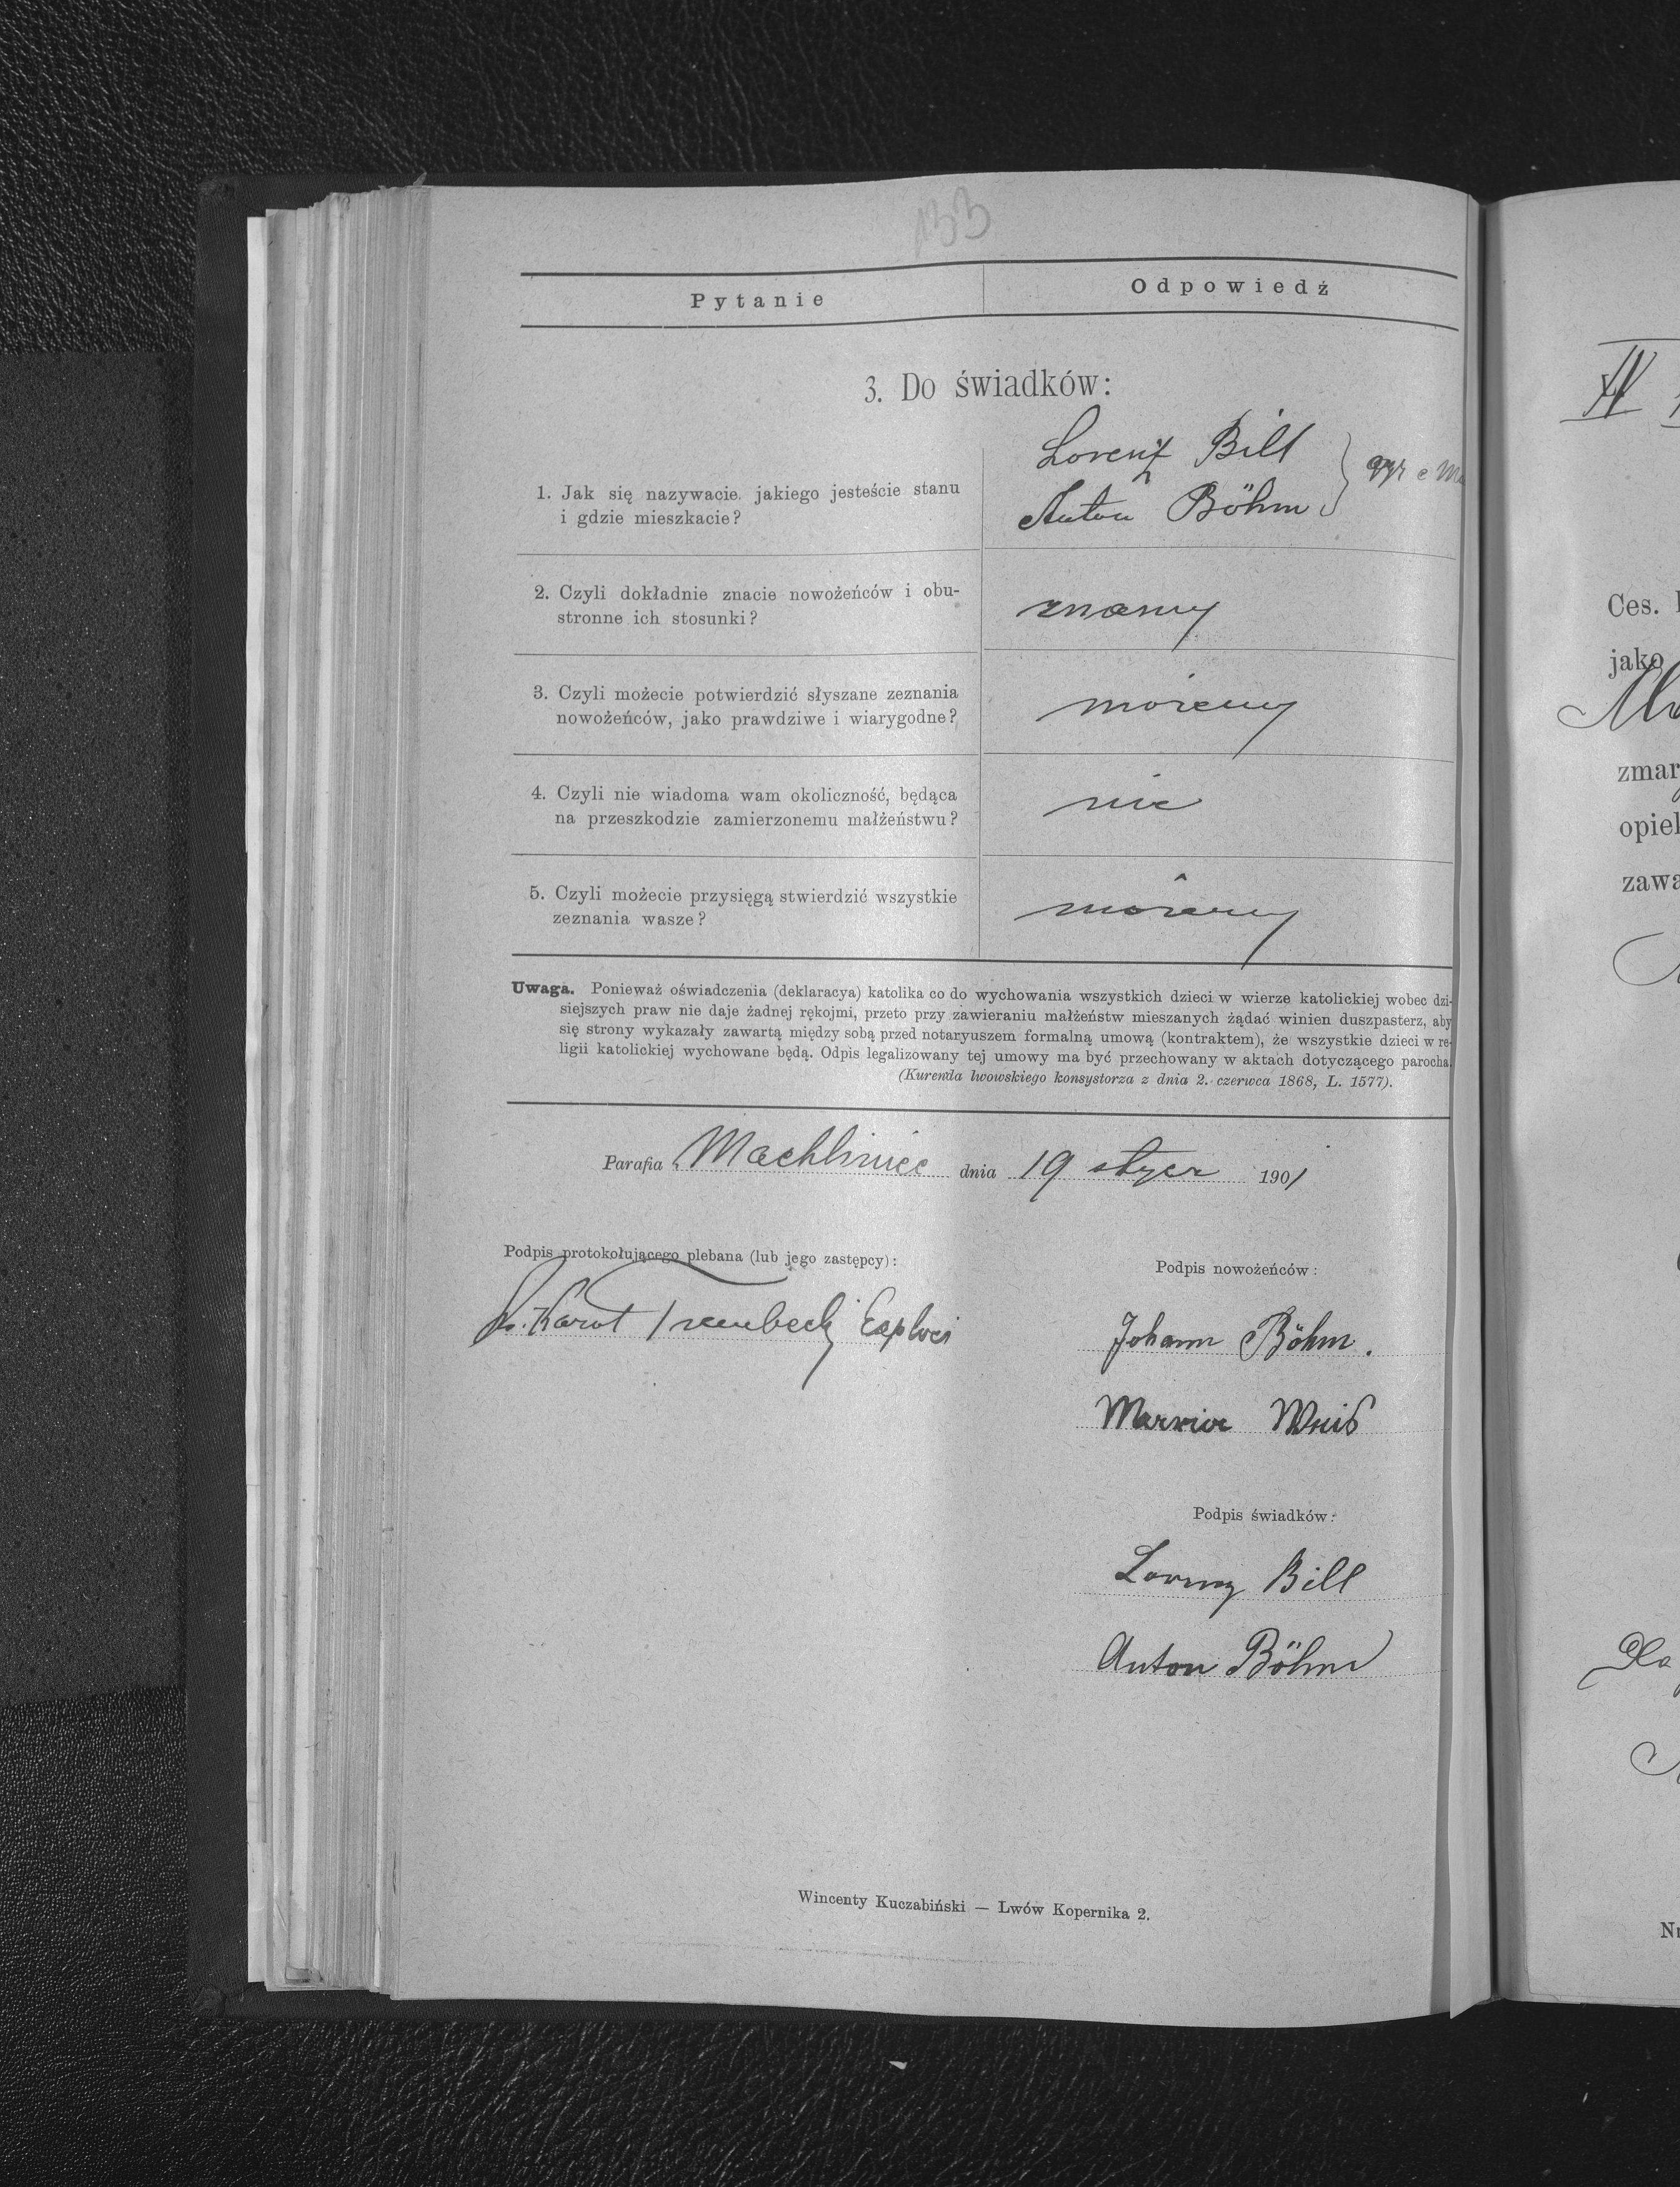 133
Pytanie Odpowiedź
3. Do świadków:
1. Jak się nazywacie, jakiego jesteście stanu
i gdzie mieszkacie?
Lorenz Bill
Anton Böhm
2. Czyli dokładnie znacie nowożeńców i obu-
stronne ich stosunki?
znamy
3. Czyli możecie potwierdzić słyszane zeznania
nowożeńców, jako prawdziwe i wiarygodne?
możemy
4. Czyli nie wiadoma wam okoliczność, będąca
na przeszkodzie zamierzonemu małżeństwu?
nie
5. Czyli możecie przysięgą stwierdzić wszystkie
zeznania wasze?
możemy
Uwaga. Ponieważ oświadczenia (deklaracya) katolika co do wychowania wszystkich dzieci w wierze katolickiej wobec dzi-
siejszych praw nie daje żadnej rękojmi, przeto przy zawieraniu małżeństw mieszanych żądać winien duszpasterz, aby
się strony wykazały zawartą między sobą przed notaryuszem formalną umową (kontraktem), że wszystkie dzieci w re-
ligii katolickiej wychowane będą. Odpis legalizowany tej umowy ma być przechowany w aktach dotyczącego parocha.
(Kurenda lwowskiego konsystorza z dnia 2. czerwca 1868, L. 1577).
Parafia Machliniec dnia 19 stycz 1901
Podpis protokołującego plebana (lub jego zastępcy):
X. Karol Trembecki
Podpis nowożeńców:
Johann Böhm.
Podpis świadków:
Lorenz Bill
Anton Böhm
Wincenty Kuczabiński — Lwów Kopernika 2.
IV
Ces.
jako
zmar
opiek
zawa
Nr